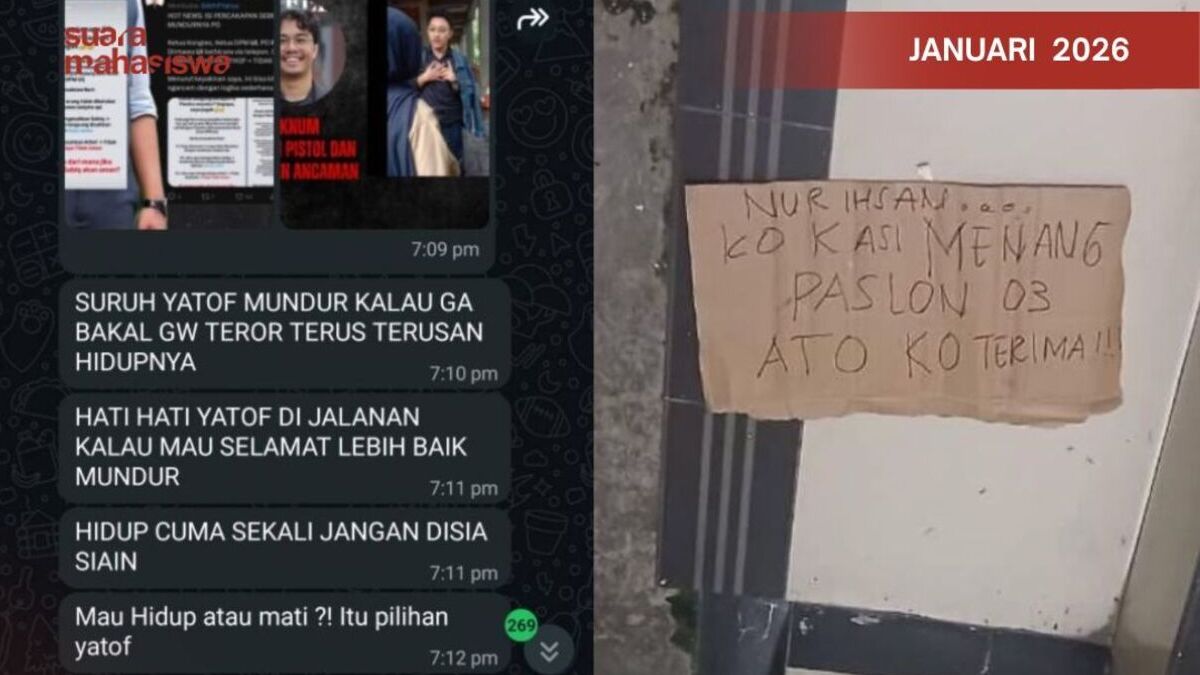 suara
mahasiswa
HOT NEWS: ISI PERCAKAPAN
MUNDURNYA PO
KNUM
PISTOL DAN
N ANCAMAN
7:09 pm
SURUH YATOF MUNDUR KALAU GA
BAKAL GW TEROR TERUS TERUSAN
HIDUPNYA
7:10 pm
HATI HATI YATOF DI JALANAN
KALAU MAU SELAMAT LEBIH BAIK
MUNDUR
7:11 pm
HIDUP CUMA SEKALI JANGAN DISIA
SIAIN
7:11 pm
Mau Hidup atau mati ?! Itu pilihan
yatof
7:12 pm
269
JANUARI 2026
NUR IHSAN....
KO KASI MENANG
PASLON 03
ATO KO TERIMA!!!